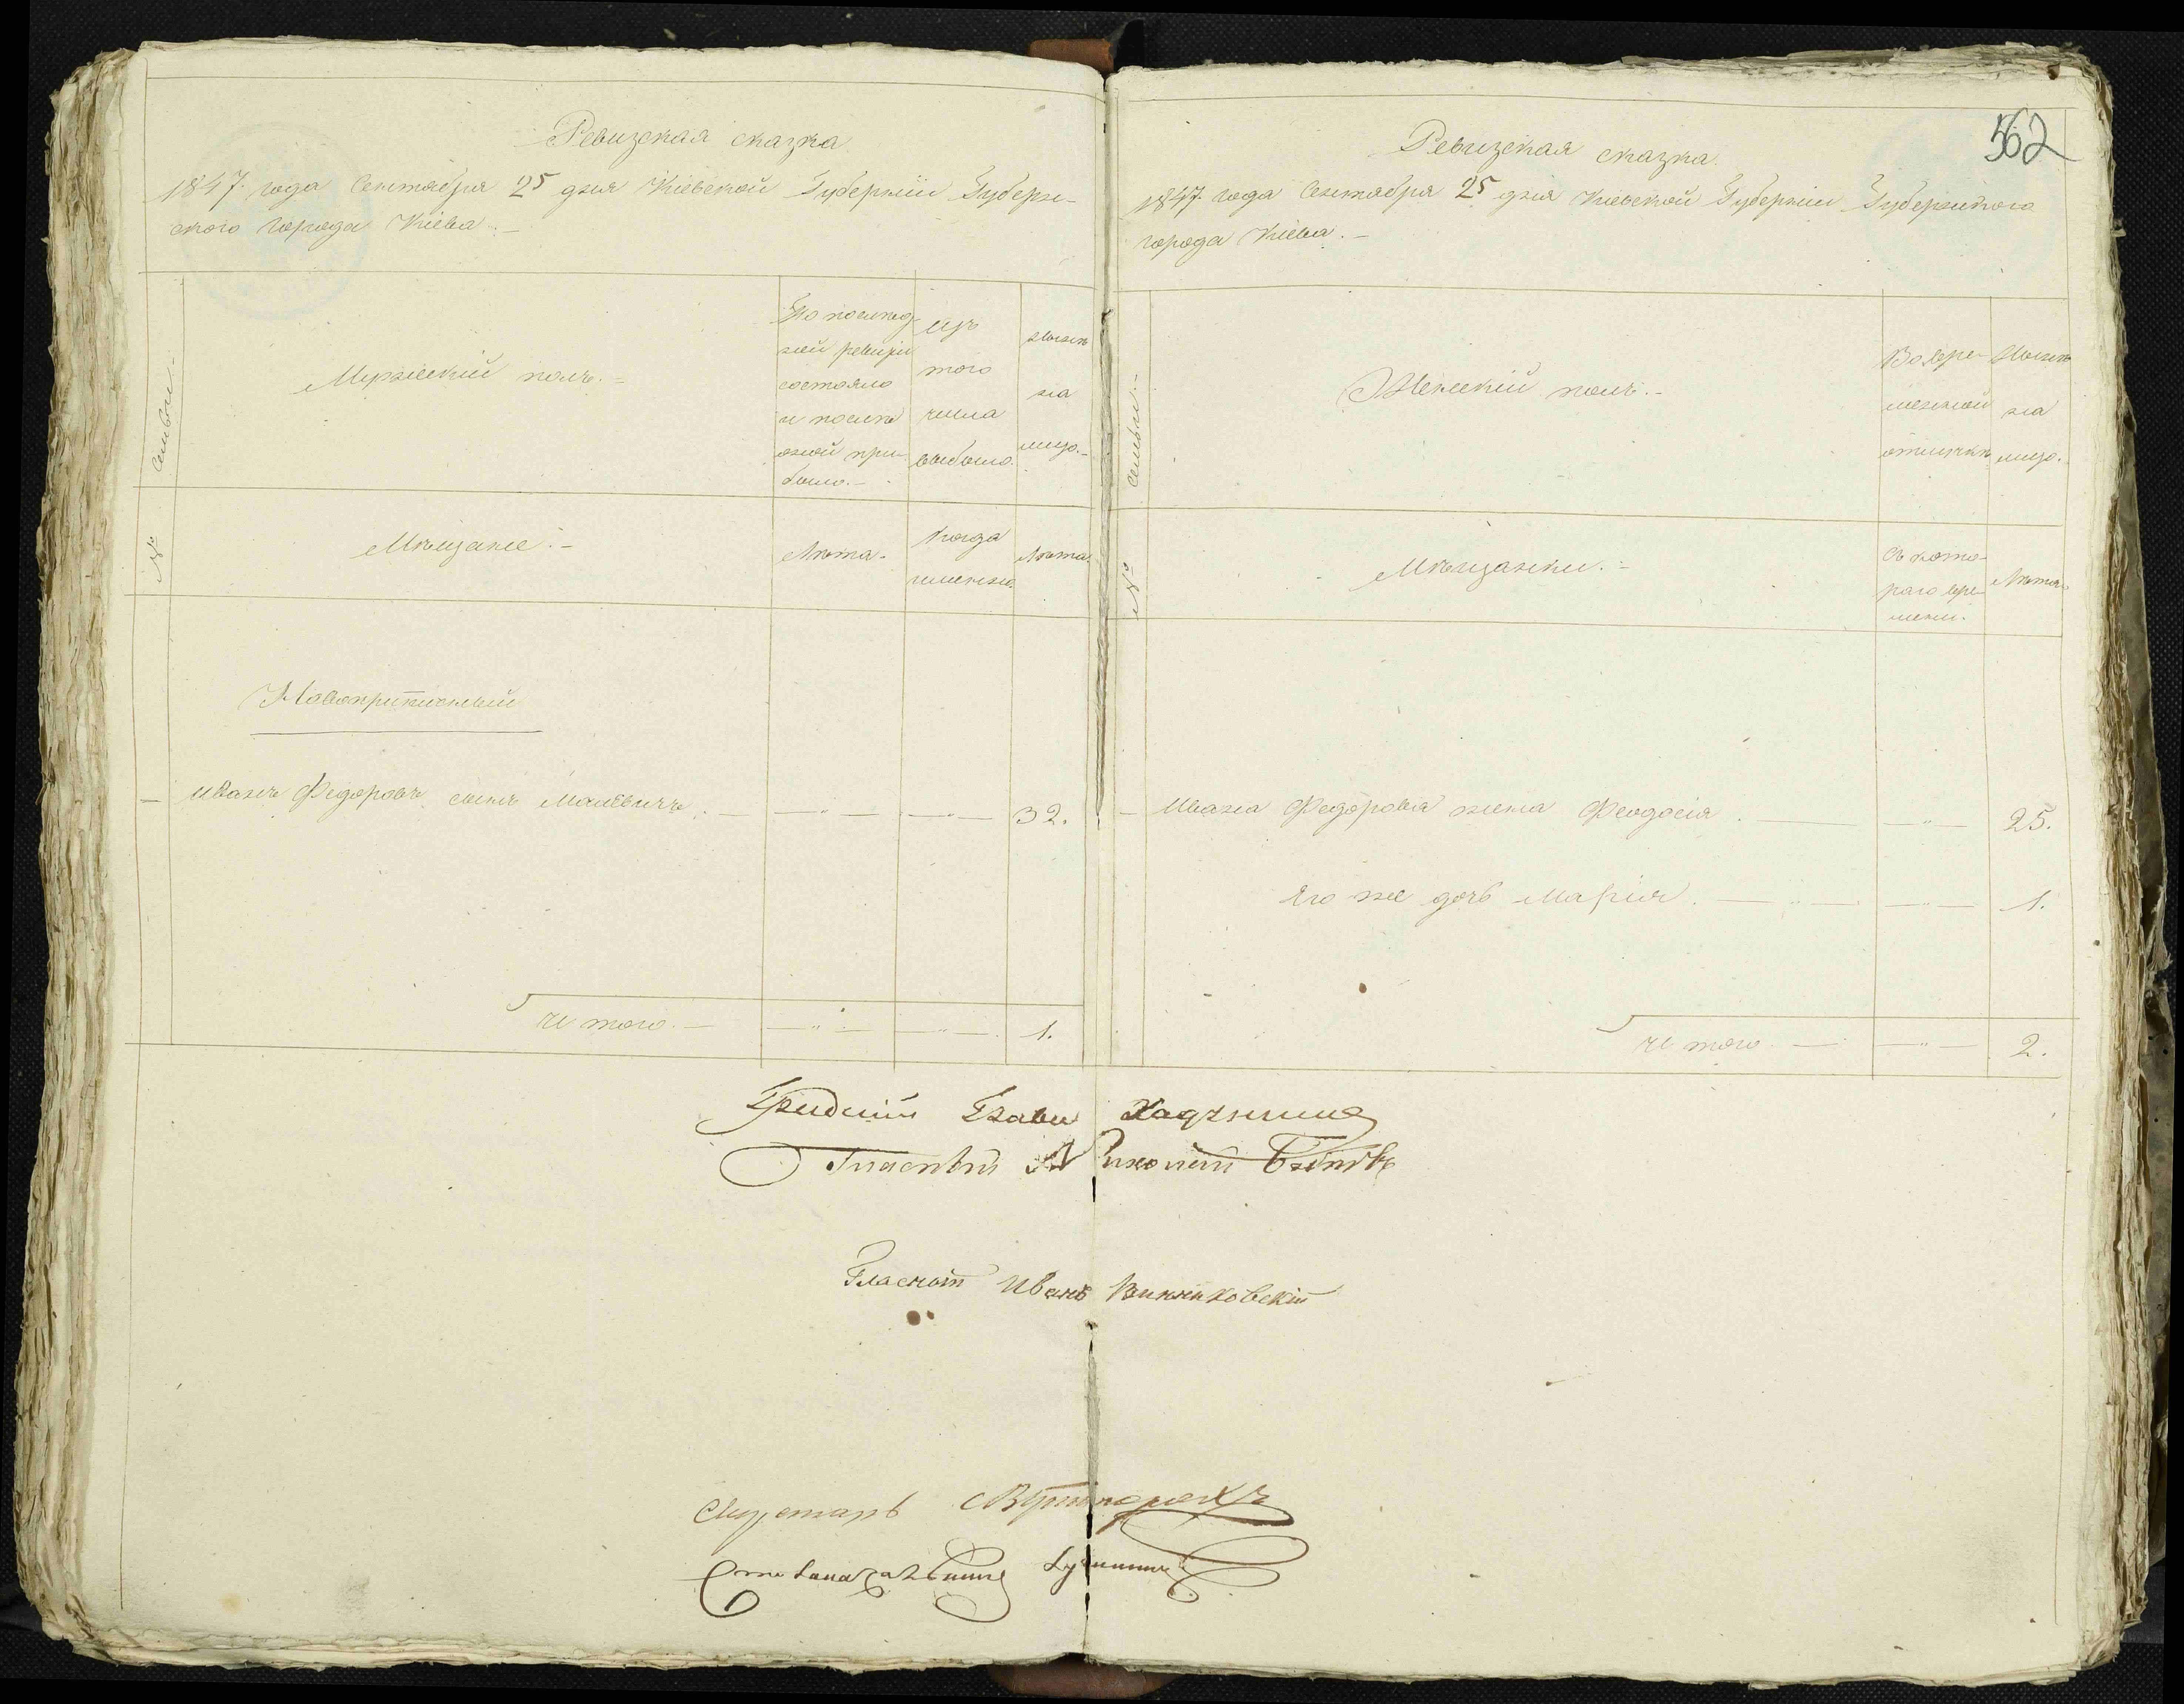 Ревизская сказка
1847. года Сентября 25 дня Кіевской Губерніи Губерн-
скаго города Кіева.-
№ Семьи.-
Мужескій полъ.-
По послед-
ней ревизіи
состояло
и после
оной при-
было.-
Изъ
того
числа
выбыло.
Ныне
на
лицо.-
Мѣщане.-
Лѣта.
Когда
именно.
Лѣта.
Новоприписный
- Иванъ Федоровъ сынъ Малевичъ. - -„- -„- 32.
И того.- -„- -„- 1.
562
Ревизская сказка.
1847. года Сентября 25 дня Кіевской Губерніи Губернскаго
города Кіева.-
№ Семьи.-
Женскій полъ.-
Во вре-
менной
отлучкѣ
Ныне
на
лицо.
Мѣщанки.-
Съ кото-
раго вре-
мени.
Лѣта.
- Ивана Федорова жена Феодосія. - -„- 25.
Его же дочь Марія. -„- -„- 1.
И того. - -„- 2.
Градскій Глава
Гласный Николай
Гласный Иванъ Винниковскій
Секретарь